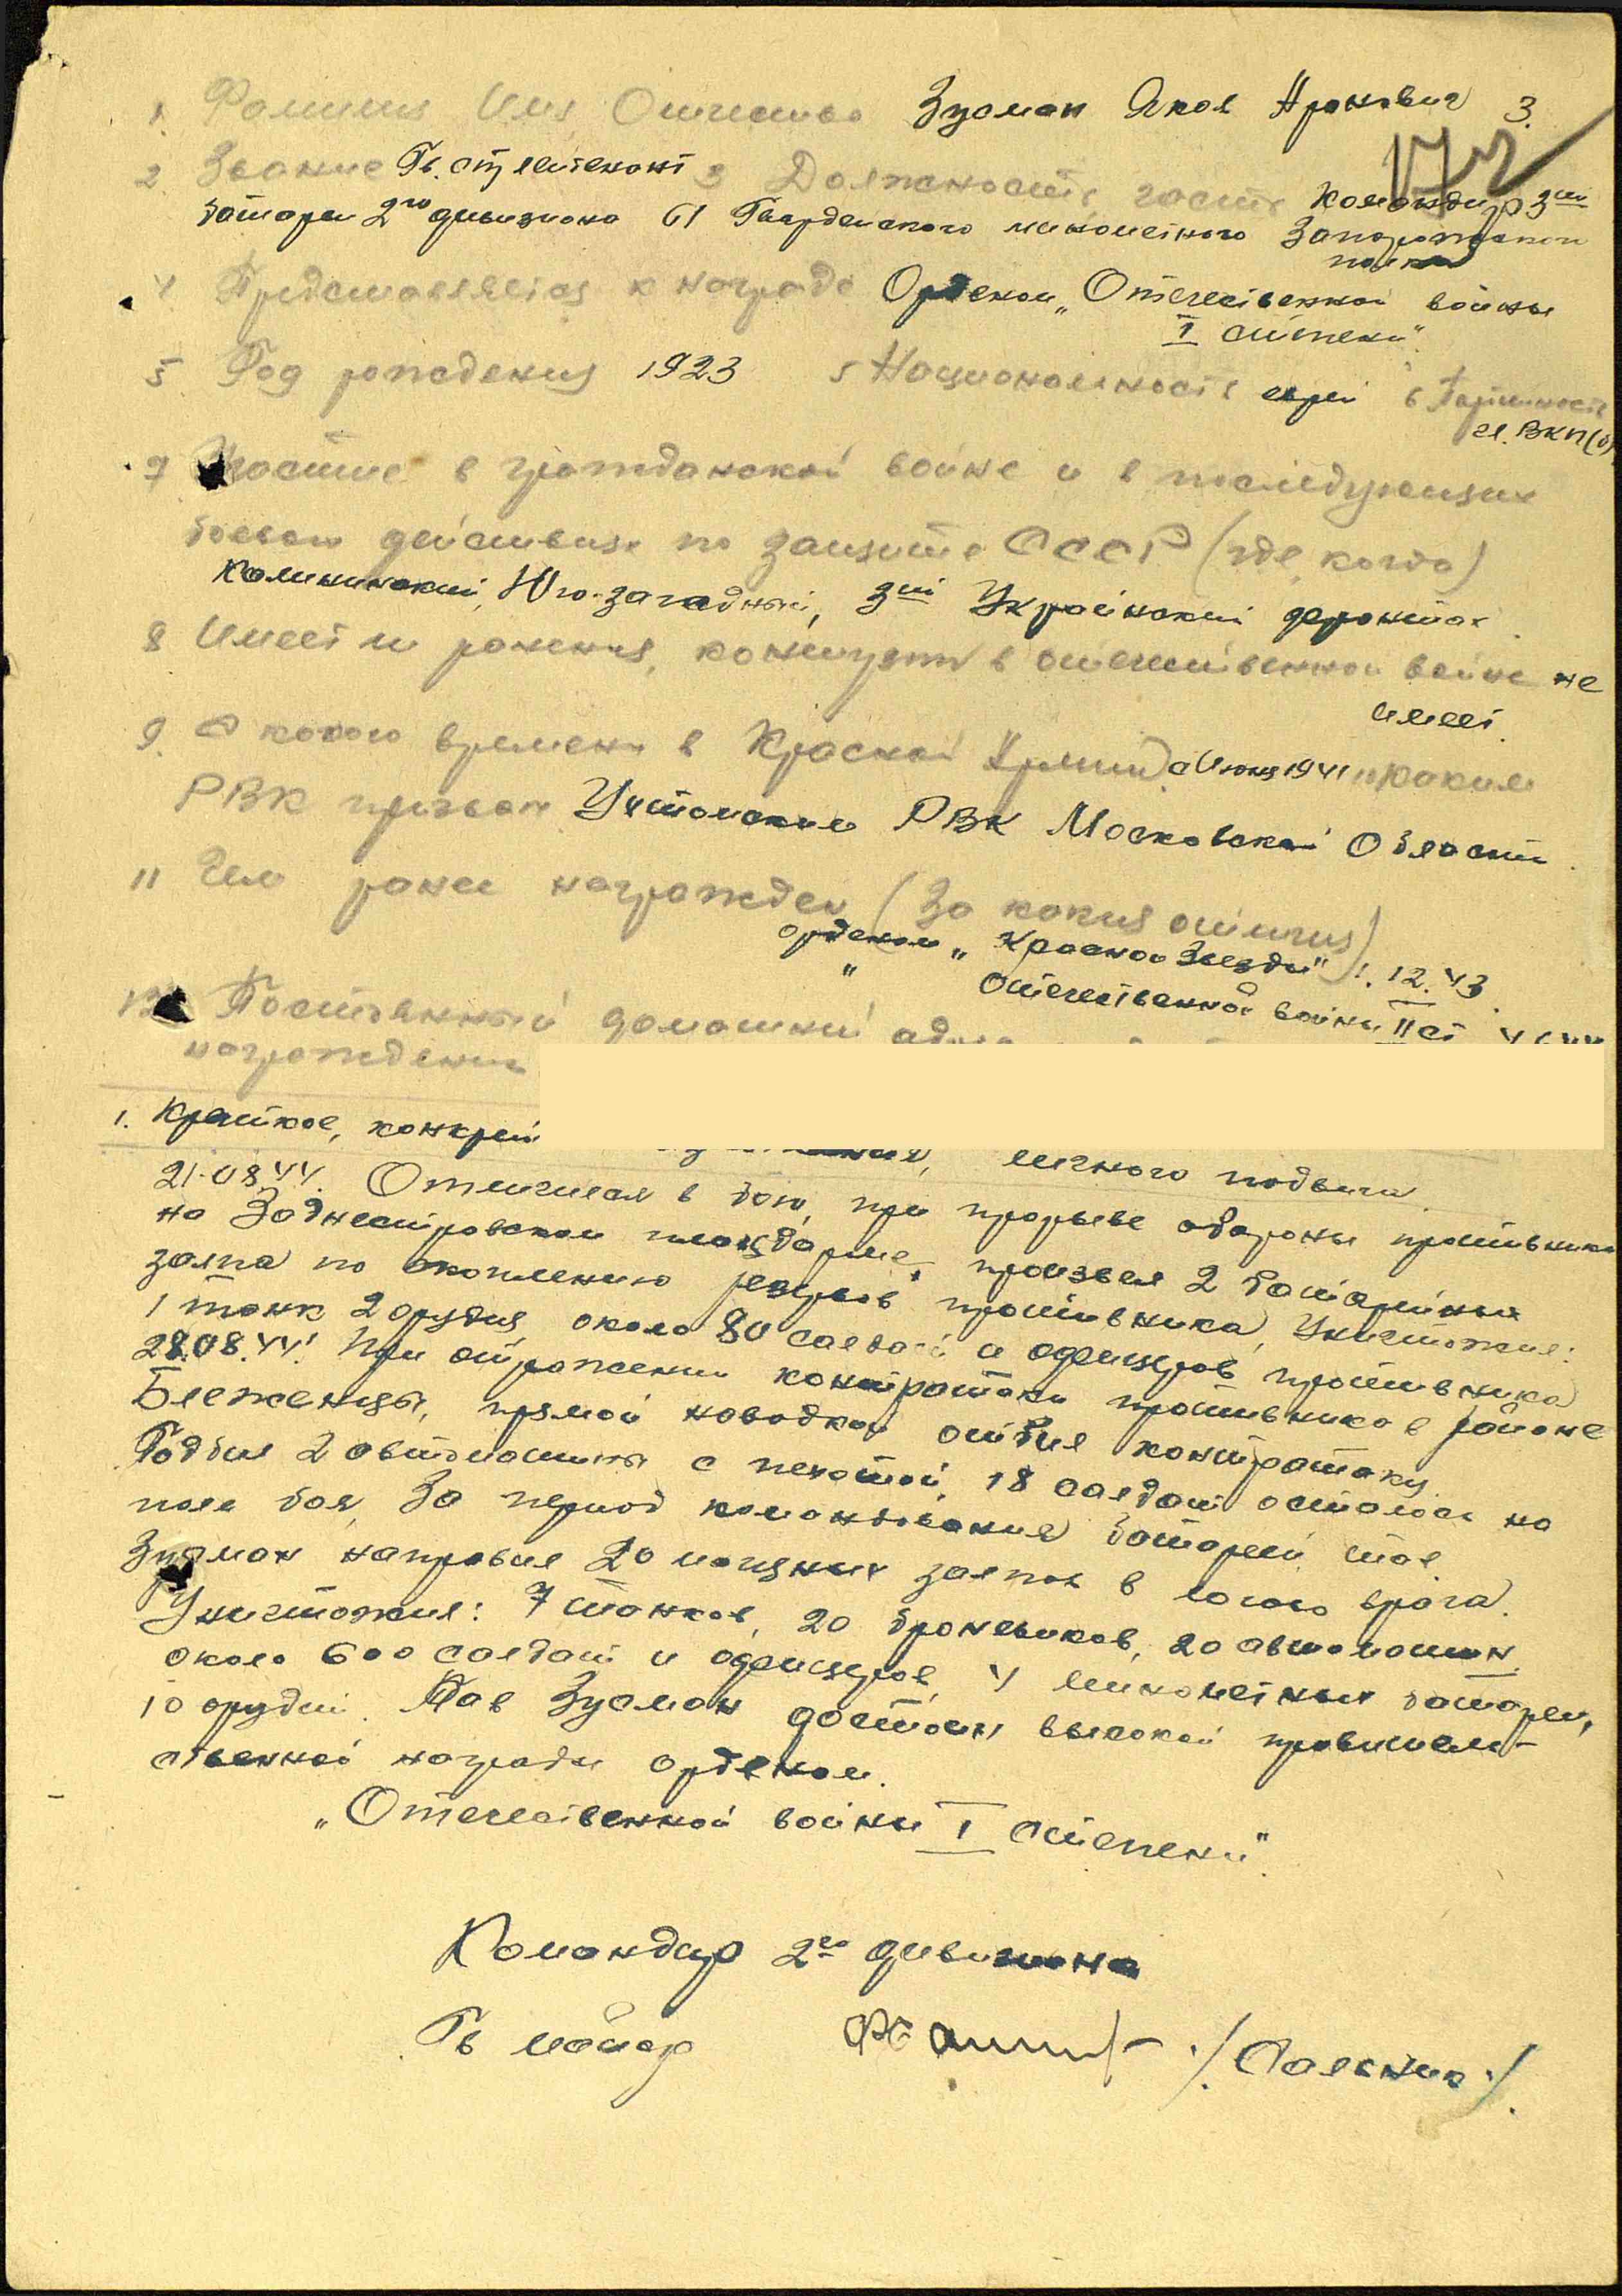 1 Фамилия Имя Отчество Зусман Яков Аронович 3.
2 Звание Гв. ст лейтенант 3 Должность, часть Командир 3ей
батареи 2го дивизиона 61 Гвардейского минометного Запорожского
полка
4 Представляется к награде Орденом „Отечественной войны
I степени"
5 Год рождения 1923 5 Национальность еврей 6 Партийность
чл. ВКП(б)
7 Участие в гражданской войне и в последующих
боевых действиях по защите СССР (где, когда)
Калининский, Юго-западный, 3ий Украинский фронтах
8 Имеет ли ранения, контузии в отечественной войне не
имеет.
9. С какого времени в Красной Армии с Июня 1941 10 Каким
РВК призван Ухтомским РВК Московской Области
11 Чем ранее награжден (За какие отличия)
орденом „Красная Звезда" 1.12.43.
" Отечественной войны II ст
12 Постоянный домашний
награждению
1. Краткое, конкрет личного подвига
21.08.44. Отличился в бою, при прорыве обороны противника
на Заднестровском плацдарме, произвел 2 батарейных
залпа по скоплению резервов противника, Уничтожил:
1 танк 2 орудия, около 80 солдат и офицеров противника
28.08.44. При отражении контратаки противника в районе
Блеженцы, прямой наводкой отбил контратаку.
Подбил 2 автомашины с пехотой, 18 солдат осталось на
поле боя, За период командования батареей тов.
Зусман направил 20 мощных залпов в логово врага.
Уничтожил: 7 танков, 20 броневиков, 20 автомашин
около 600 солдат и офицеров, 4 минометных батареи,
10 орудий. Тов Зусман достоин высокой правитель-
ственной награды орденом.
„Отечественной войны I степени".
Командир 2го дивизиона
Гв майор /Сальник/